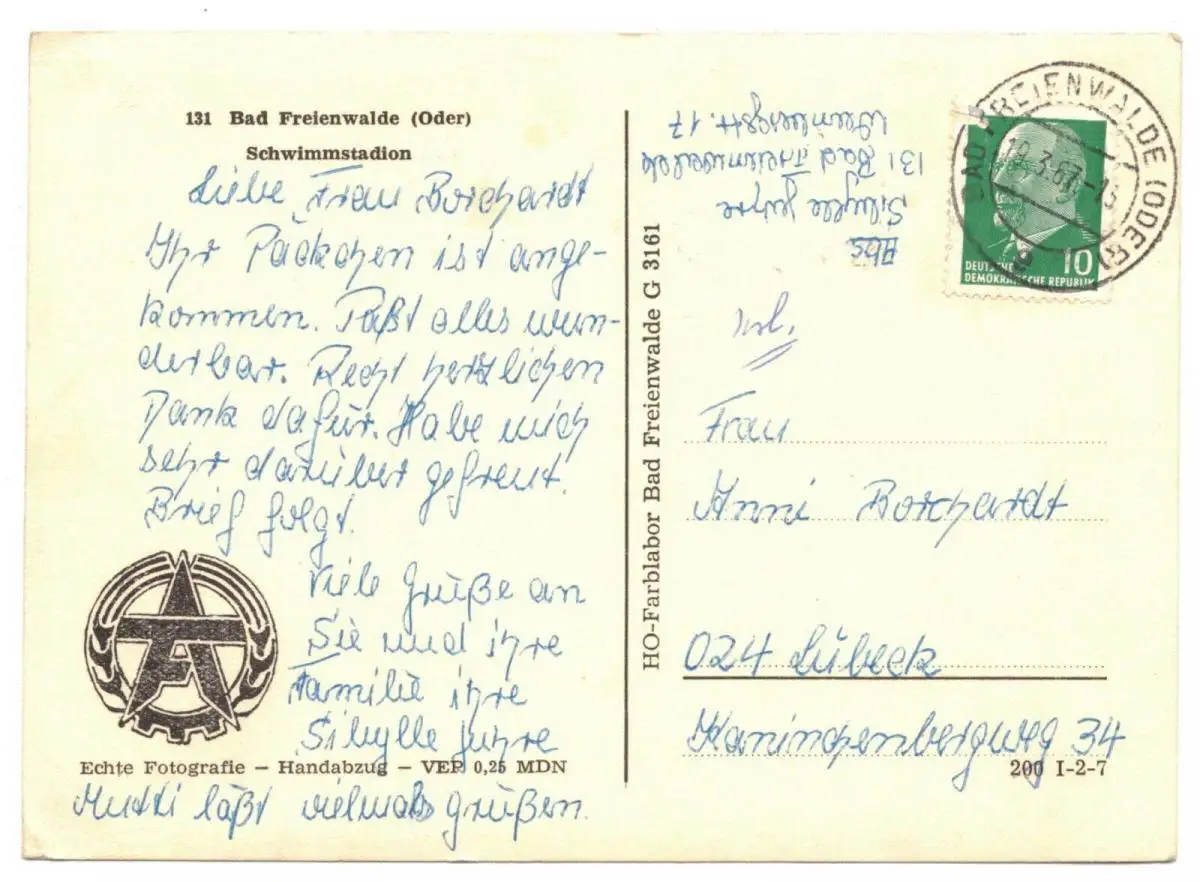 131 Bad Freienwalde (Oder)
Schwimmstadion
Liebe Frau Borchardt
Ihr Päckchen ist ange-
kommen. Paßt alles wun-
derbar. Recht herzlichen
Dank dafür. Habe mich
sehr darüber gefreut.
Brief folgt.
Viele Grüße an
Sie und ihre
Familie ihre
Sibylle Juhre
Echte Fotografie – Handabzug – VEP 0,25 MDN
Mutti läßt vielmals grüßen.
HO-Farblabor Bad Freienwalde G 3161
Abs
Sibylle Juhre
131 Bad Freienwalde
Weinbergstr. 17
BAD FREIENWALDE (ODER)
10.3.67-15
10
DEUTSCHE
DEMOKRATISCHE REPUBLIK
Frau
Anni Borchardt
024 Lübeck
Kaninchenbergweg 34
200 I-2-7